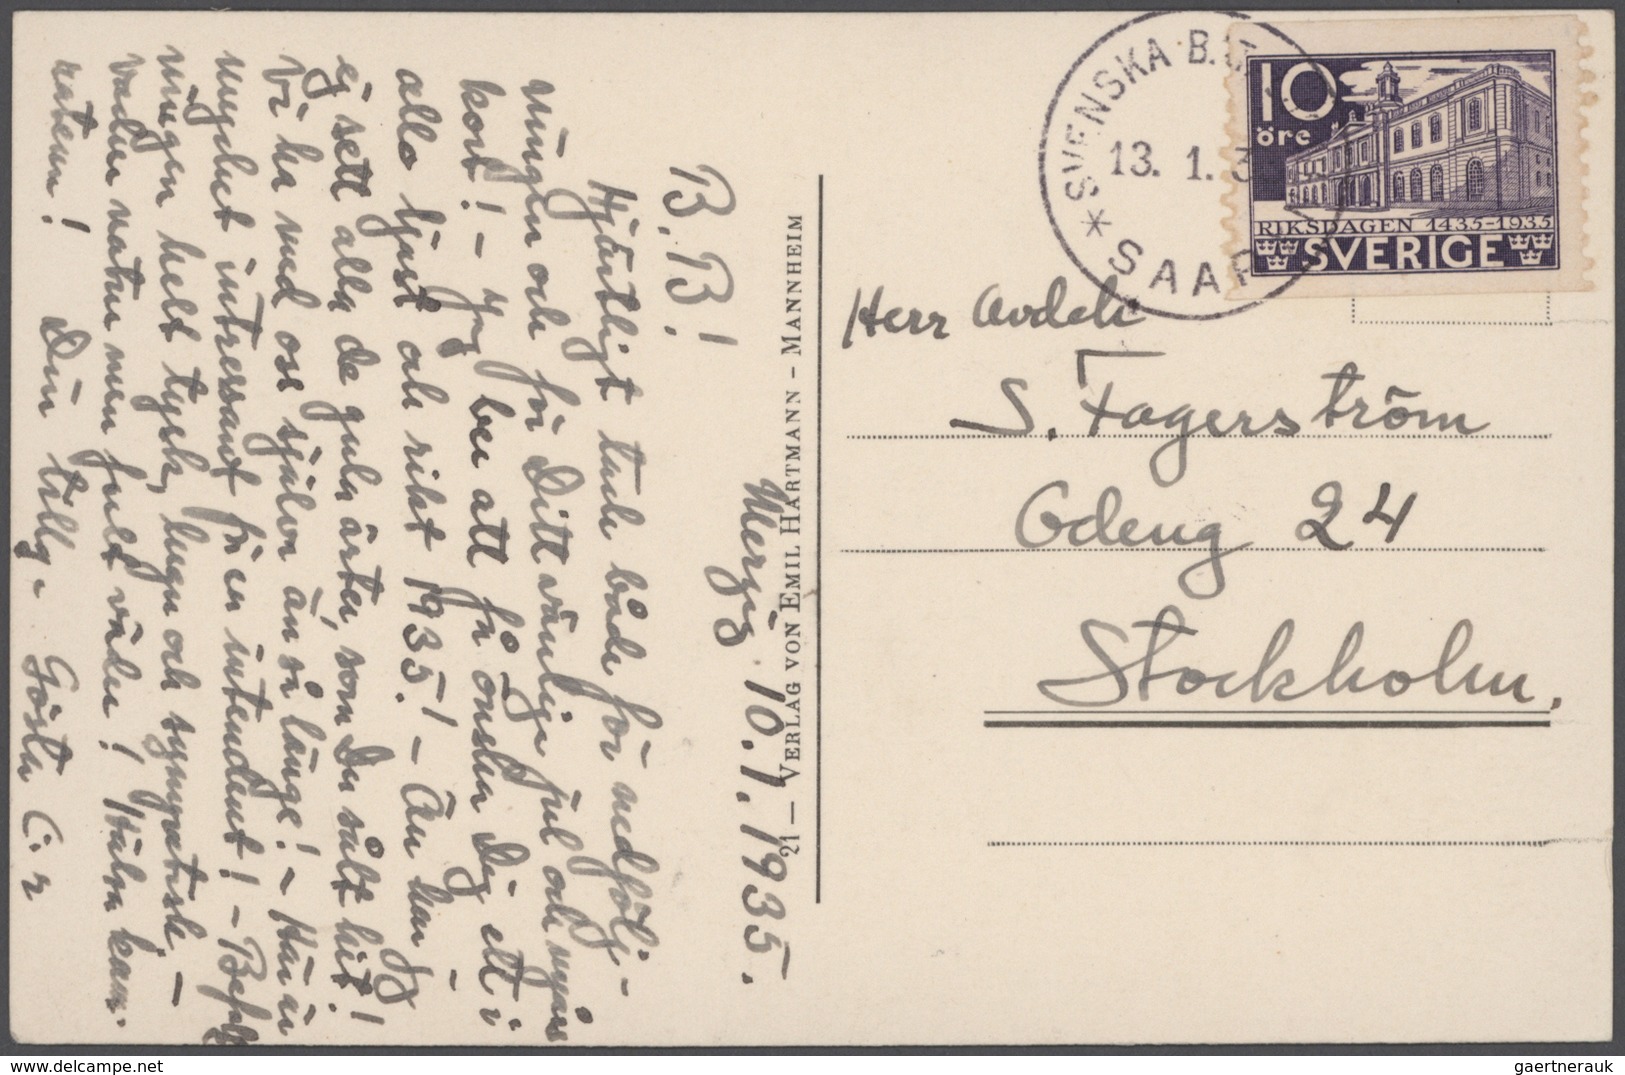 SVENSKA B.
13. 1. 3
* SAAR
10
öre
RIKSDAGEN 1435-1935
SVERIGE
Herr Avdch
S. Fagerström
Odeng 24
Stockholm.
21 — VERLAG VON EMIL HARTMANN - MANNHEIM
Merzig 10.1.1935.
B. B!
Hjärtligt tack både för medfölj-
ningen och för Ditt vänliga jul och nyårs
kort! - Jag ber att få önska Dig ett i
allo ljust och rikt 1935! - Än har jag
ej sett alla de gula ärter, som Du sålt hit!
Vi ha med oss själva än så länge! - Här är
mycket intressant för en intendent! - Befolk
ningen helt tysk, lugn och sympatisk -
vacker natur men fult väder! Hälsa kam-
raterna! Din tillg. Gösta C:r
gaertnerauk